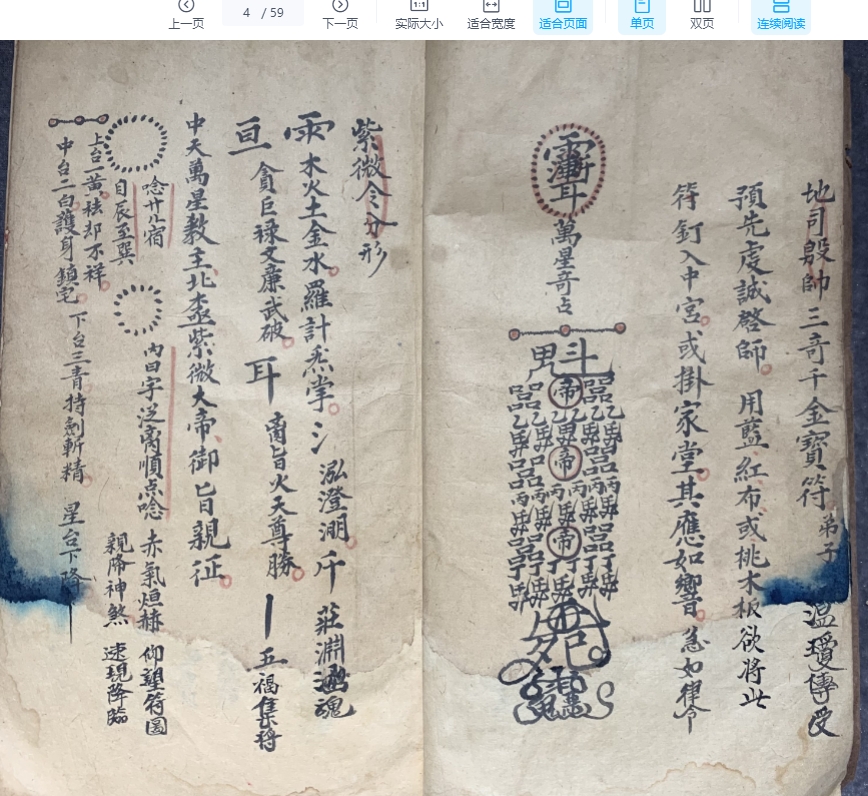 上一页
4 / 59
下一页
实际大小
适合宽度
适合页面
单页
双页
连续阅读
地司殷帥三奇千金寶符 弟子 溫瓊傳受
預先虔誠啓師 用藍紅布或桃木板欲將此
符釘入中宮或掛家堂其應如響 急如律令
萬星奇占
斗
帝
帝
帝
紫微令分形
木火土金水羅計炁掌 泓澄淵 斤 莊淵 魂
亘 貪巨祿文廉武破 耳 旨火天尊勝 五福集將
中天萬星教主北極紫微大帝御旨親征
念廿八宿 內曰字 順点唸 赤氣烜赫 仰望符圖
自辰至巽 親降神煞 速現降臨
上台一黃祛却不祥
中台二白護身鎮宅 下台三青持劍斬精 星台下降